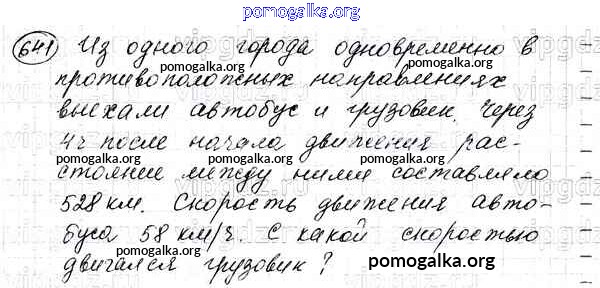 pomogalka.org
641 Из одного города одновременно в
противоположных направлениях
pomogalka.org pomogalka.org
выехали автобус и грузовик. Через
4ч после начала движения рас-
pomogalka.org pomogalka.org
стояние между ними составляло
528 км. Скорость движения авто-
pomogalka.org pomogalka.org
буса 58 км/ч. С какой скоростью
двигался грузовик?
pomogalka.org pomogalka.org